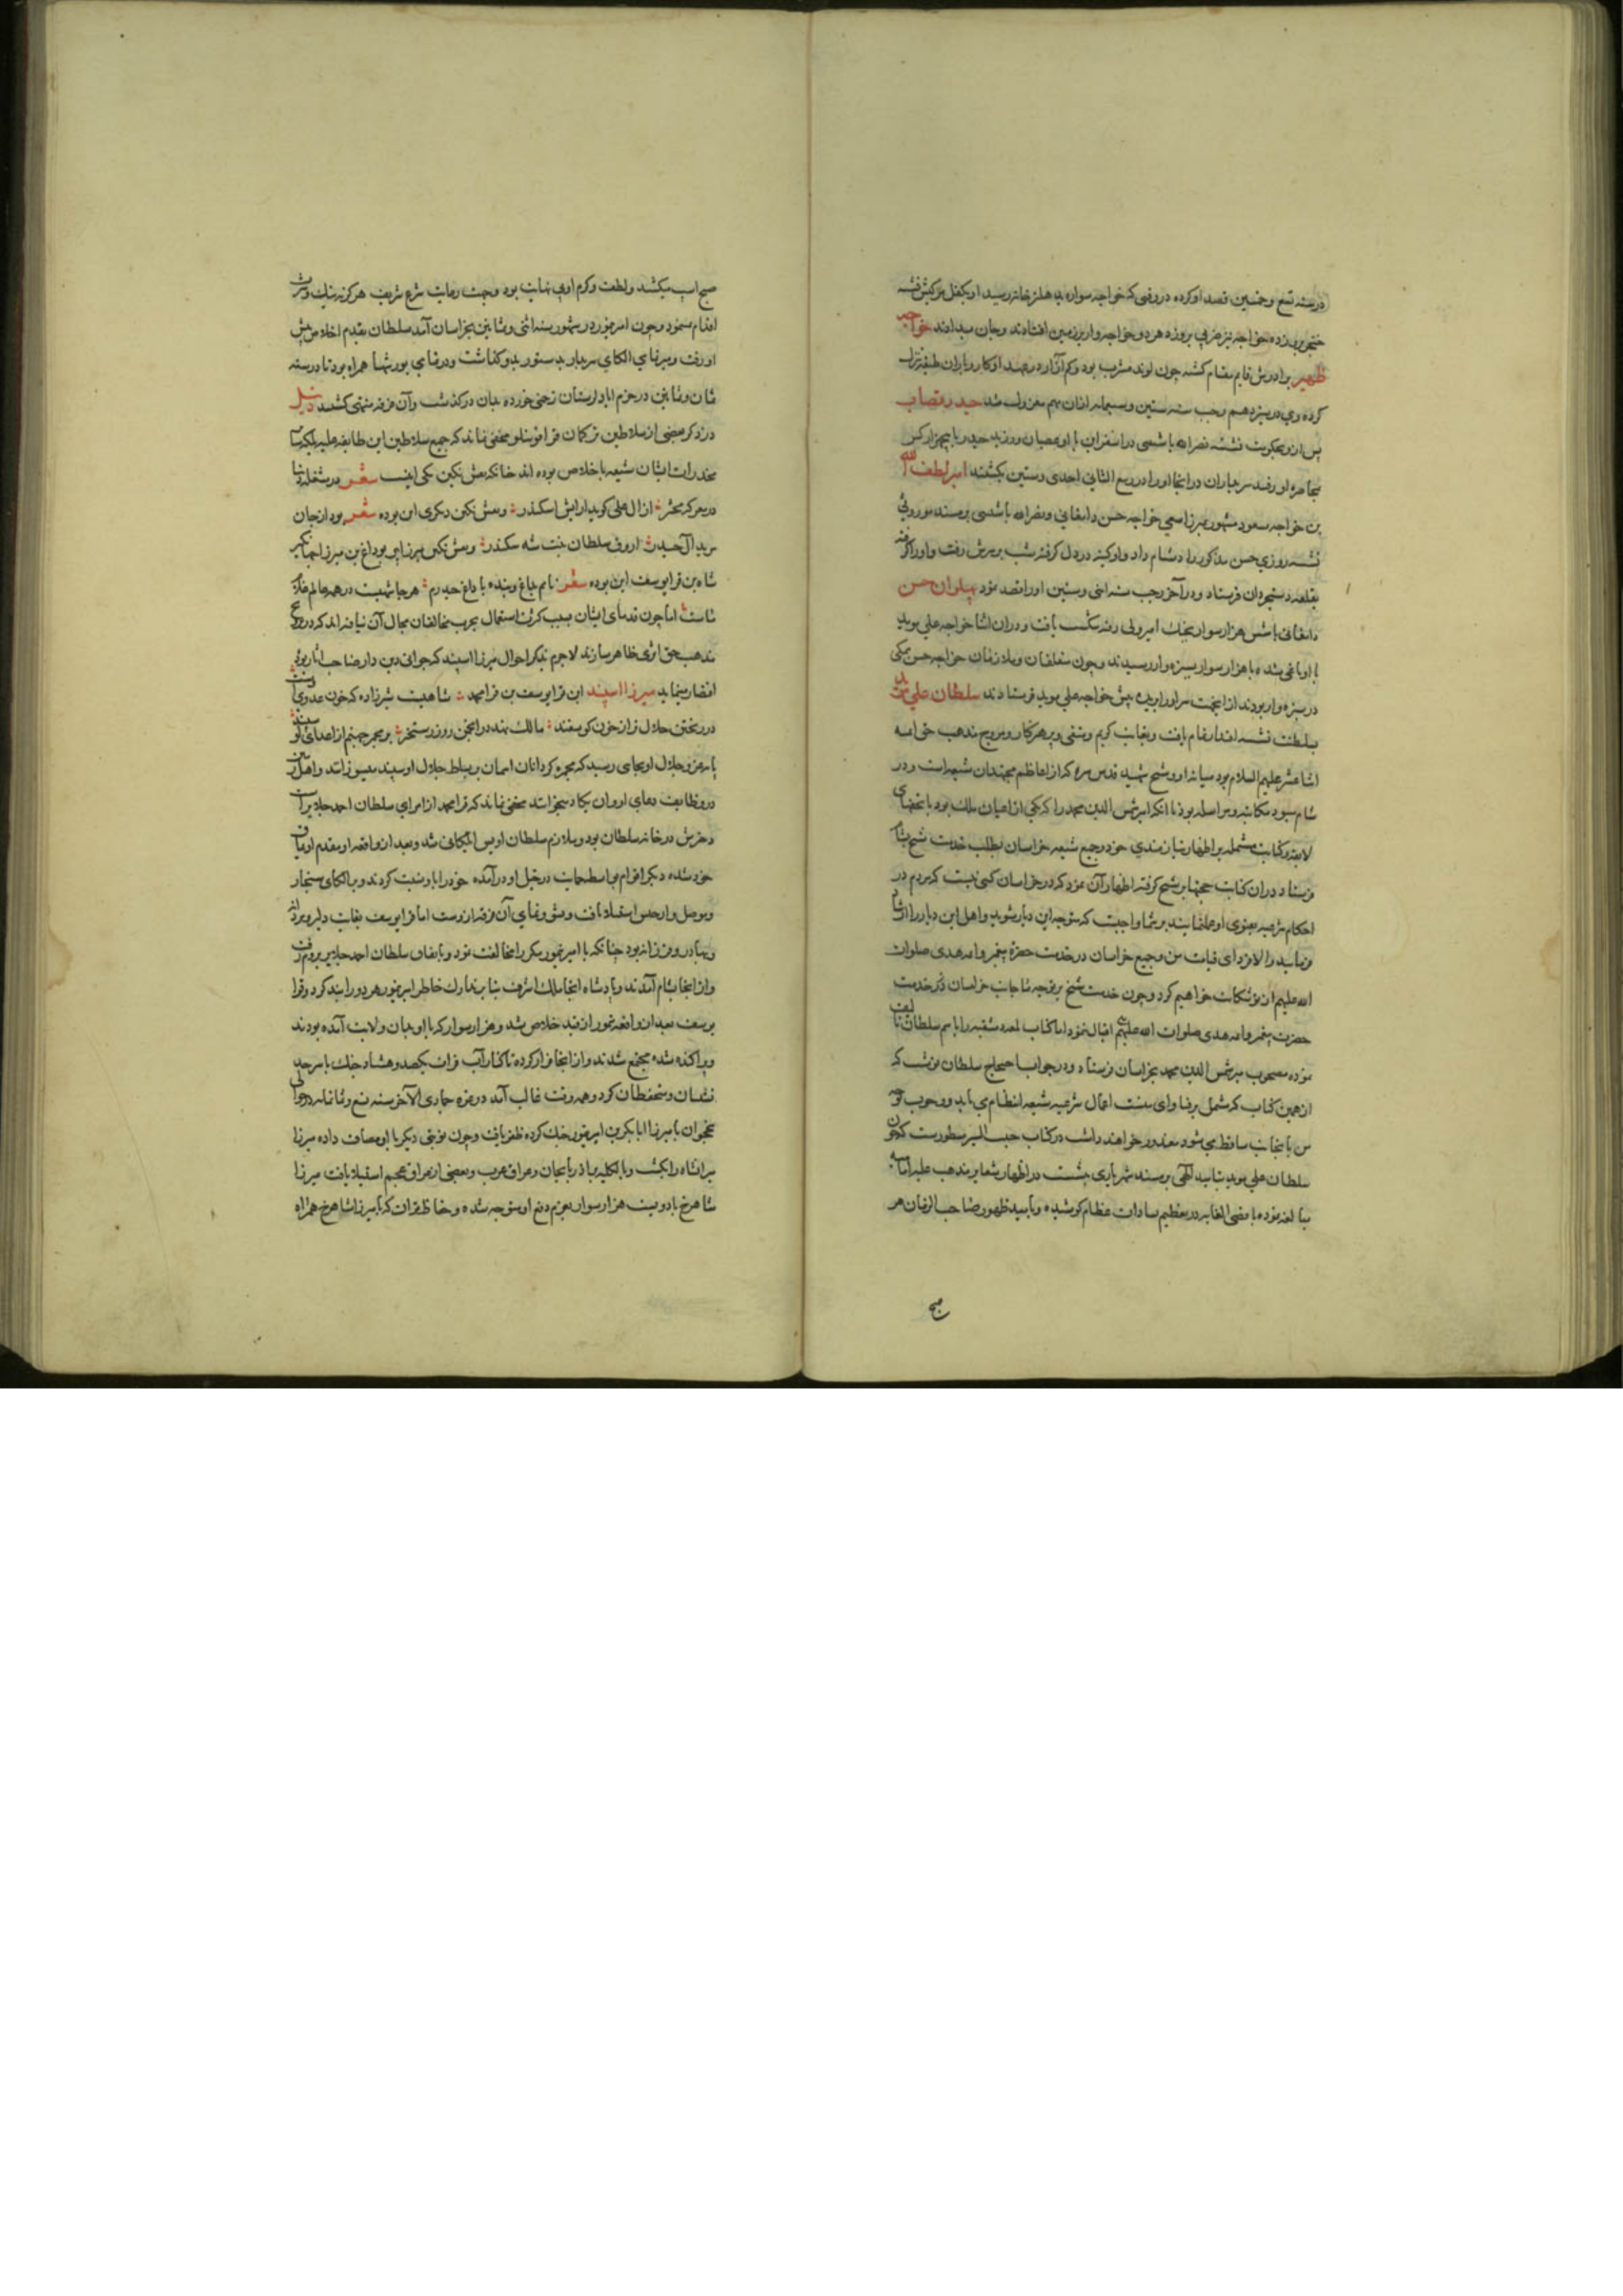 در سنه تسع و خمسین قصد او کرده در وقتی که خواجه سواره بدهلیز خانه رسید او بکفل مرکبش نشسته
خنجر برو زده خواجه نیز ضربی برو زده هر دو خواجه وار بر زمین افتادند و جان بدادند خواجه
ظهیر برادرش قایم مقام گشته چون لوند مشرب بود و کم آزار
کرده وی در سیزدهم رجب سنه ستین و سبعمایه ازان مهم معزول شد حیدر قصاب
پس ازو بحکومت نشسته نصرالله باشتینی در اسفراین با او عصیان ورزید حیدر با پنجهزار کس
بمحاصره او رفت سربداران در آنجا او را در ربیع الثانی احدی و ستین بکشتند امیر لطف الله
بن خواجه مسعود مشهور بمیرزا بسعی خواجه حسن دامغانی و نصرالله باشتینی بر مسند موروثی
نشسته روزی حسن مذکور را دشنام داد و او کینه در دل گرفته شب بر سرش رفت و او را گرفته
بقلعه دستجردان فرستاد و در آخر رجب سنه اثنی و ستین او را قصد نمود پهلوان حسن
دامغانی با شش هزار سوار بجنگ امیر ولی رفته شکست یافت و در آن اثنا خواجه علی موید
با او یاغی شده با هزار سوار بسبزه وار رسیدند و چون متعلقان و ملازمان خواجه حسن همگی
در سبزه وار بودند ازینجهت سر او را بریده پیش خواجه علی موید فرستادند سلطان علی موید
بسلطنت نشسته اقتدار تمام یافت و بغایت کریم و متقی و پرهیزکار و مروج مذهب حق ائمه
اثنا عشر علیهم السلام بود میانه او و شیخ شهید قدس سره که از اعاظم مجتهدان شیعه است و در
شام میبود مکاتبه و مراسله بود تا آنکه امیر شمس الدین محمد را که یکی از اعیان ملک بود با تحفهای
لایقه و کتابت مشتمله بر اظهار نیازمندی خود و جمیع شیعه خراسان بطلب خدمت شیخ بشام
فرستاد در آن کتابت حجتها بر شیخ گرفته اظهار آن نمود که در خراسان کسی نیست که مردم در
احکام شرعیه بفتوی او عمل نمایند بر شما واجبست که متوجه این دیار شوید و اهل این دیار را ارشاد
فرمایید و الا فردای قیامت من و جمیع خراسان در خدمت حضرة پیغمبر و ائمه هدی صلوات
الله علیهم از تو شکایت خواهیم کرد و چون خدمت شیخ بر توجه بجانب خراسان
حضرت پیغمبر و ائمه هدی صلوات الله علیهم اقبال ننمود اما کتاب لمعه دمشقیه را باسم سلطان تالیف
نموده مصحوب میر شمس الدین محمد بخراسان فرستاد و در جواب اصحاب سلطان نوشت که
از همین کتاب که مشتمل بر فتاوای منست اعمال شرعیه شیعه انتظام می یابد و وجوب توجه
من بآنجانب ساقط می شود معذور خواهند داشت در کتاب حبیب السیر مسطورست که چون
سلطان علی موید بتایید الهی بر مسند شهریاری نشست در اظهار شعایر مذهب علیه امامیه
مبالغه نموده باقصی الغایه در تعظیم سادات عظام کوشیده و بامید ظهور صاحب الزمان هر
صبح
صبح اسب میکشید و لطف و کرم او بی نهایت بود و جهت رعایت شرع شریف هرگز به بنگ و شراب
اقدام ننمود و چون امیر تیمور در شهور سنه اثنی و ثمانین بخراسان آمد سلطان بقدم اخلاص پیش
او رفت و میر تمامی الکای سربدار بدستور بدو گذاشت و در تمامی یورشها همراه بود تا در سنه
ثمان و ثمانین در خرم اباد لرستان زخمی خورده بدان درگذشت و آن فرقه منتهی گشتند ذیل
در ذکر بعضی از سلاطین ترکمان قراقوینلو مخفی نماند که جمیع سلاطین این طایفه علیه بلکه نساء
مخدرات ایشان شیعه باخلاص بوده اند چنانکه نقش نگین یکی اینست شعر در مشغله دنیا
در معرکه محشر از آل علی گوید آرایش اسکندر و نقش نگین دیگری این بوده شعر بود از جان
مرید آل حیدر اروق سلطان بنت شه سکندر و نقش نگین میرزا پیر بوداغ بن میرزا جهانگیر
شاه بن قرا یوسف این بوده شعر نامم بداغ و بنده با داغ حیدرم هر جا شهیست در همه عالم غلام
ماست اما چون قدمای ایشان بسبب کثرت اشتغال بحرب مخالفان مجال آن نیافته اند که در رواج
مذهب حق اثری ظاهر سازند لاجرم بذکر احوال میرزا اسپند که
اقتصار مینماید میرزا اسپند ابن قرا یوسف بن قرا محمد شاهیست شیرزاده که خون عدوی
در ریختن حلال تر از خون گوسفند مالک نهد در انجمن روز رستخیز بر مجمر جهنم از اعدای او سپند
پایه عز و جلال او بجایی رسید که مجمره گردانان آسمان بر بساط جلال او سپند میسوزانند و اهل زمین
در وظایف دعای او وان یکاد میخوانند مخفی نماند که قرا محمد از امرای سلطان احمد جلایر است
دخترش در خانه سلطان بود و ملازم سلطان اویس ایلکانی شد و بعد از واقعه او مقدم اویماق
خود شده دیگر اقوام بواسطه حمایت در خیل او درآمده خود را باو نسبت کردند و بر الکای سنجار
و موصل و ارجیس استیلا یافت و نشو و نمای آن فرقه ازوست اما قرا یوسف بغایت دلیر و مردانه
و بهادر و فرزانه بود چنانکه با امیر تیمور مکرر مخالفت نمود و باتفاق سلطان احمد جلایر بروم رفت
و از آنجا بشام آمدند و پادشاه آنجا ملک اشرف بنا بر تدارک خاطر امیر تیمور هر دو را بند کرد و قرا
یوسف بعد از واقعه تیمور از قید خلاص شد و هزار سوار که با او بدان ولایت آمده بودند
و پراکنده شده مجتمع شدند و از آنجا فرار کرده تا کنار آب فرات یکصد و هشتاد جنگ با سرحد
نشینان و مستحفظان کرد و همه وقت غالب آمد در غره جمادی الآخر سنه تسع و ثمانمایه در حوالی
نخجوان با میرزا ابابکر بن امیر تیمور جنگ کرده ظفر یافت و چون نوبتی دیگر با او مصاف داده میرزا
میرانشاه را بکشت و بالکلیه بر آذربایجان و عراق عرب و بعضی از عراق عجم استیلا یافت میرزا
شاهرخ با دویست هزار سوار بعزم دفع او متوجه شده و حفاظ قران که با میرزا شاهرخ همراه